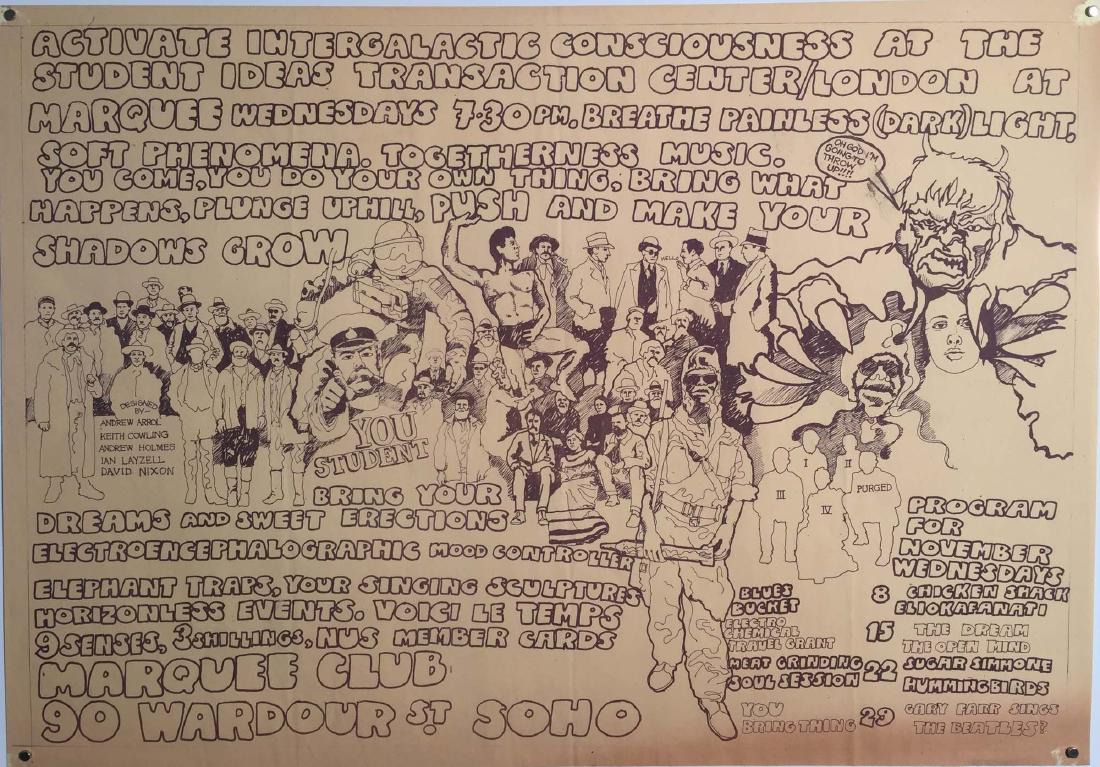 ACTIVATE INTERGALACTIC CONSCIOUSNESS AT THE
STUDENT IDEAS TRANSACTION CENTER/LONDON AT
MARQUEE WEDNESDAYS 7·30 PM. BREATHE PAINLESS (DARK) LIGHT,
SOFT PHENOMENA. TOGETHERNESS MUSIC.
YOU COME, YOU DO YOUR OWN THING, BRING WHAT
HAPPENS, PLUNGE UPHILL, PUSH AND MAKE YOUR
SHADOWS GROW
OH GOD I'M
GOING TO
THROW
UP!!!!
DESIGNED
BY—
ANDREW ARROL
KEITH COWLING
ANDREW HOLMES
IAN LAYZELL
DAVID NIXON
YOU
STUDENT
I
II
III
IV
PURGED
BRING YOUR
DREAMS AND SWEET ERECTIONS
ELECTROENCEPHALOGRAPHIC MOOD CONTROLLER
ELEPHANT TRAPS, YOUR SINGING SCULPTURES
HORIZONLESS EVENTS. VOICI LE TEMPS
9 SENSES, 3 SHILLINGS, NUS MEMBER CARDS
MARQUEE CLUB
90 WARDOUR ST SOHO
PROGRAM
FOR
NOVEMBER
WEDNESDAYS
BLUES
BUCKET
8 CHICKEN SHACK
ELIOKAFANATI
ELECTRO
CHEMICAL
TRAVEL GRANT
15 THE DREAM
THE OPEN MIND
MEAT GRINDING
SOUL SESSION
22 SUGAR SIMMONE
HUMMINGBIRDS
YOU
BRING THING
29 GARY FARR SINGS
THE BEATLES?